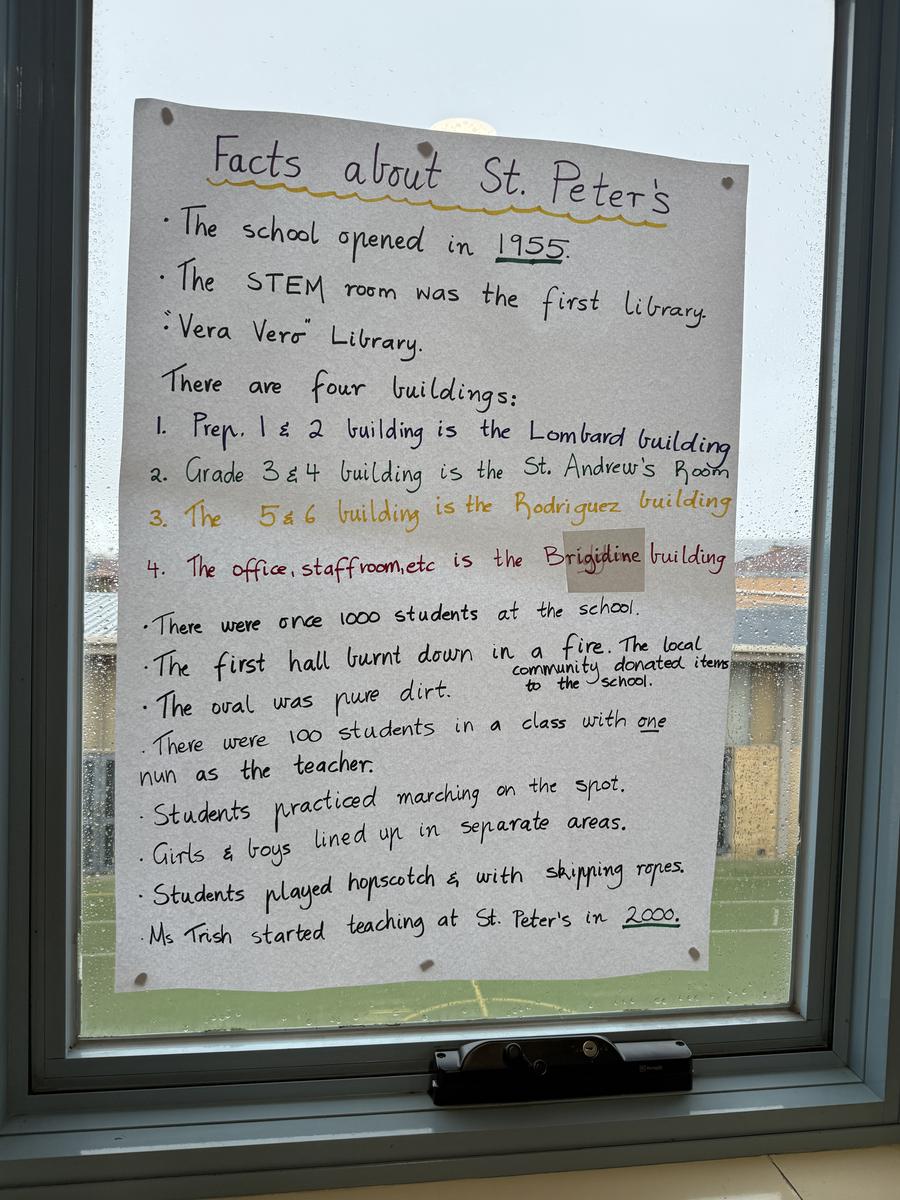 Facts about St. Peter's
· The school opened in 1955.
· The STEM room was the first library.
: "Vera Vero" Library.
There are four buildings:
1. Prep, 1 & 2 building is the Lombard building
2. Grade 3 & 4 building is the St. Andrew's Room
3. The 5 & 6 building is the Rodriguez building
4. The office, staffroom, etc is the Brigidine building
· There were once 1000 students at the school.
· The first hall burnt down in a fire. The local
community donated items
to the school.
· The oval was pure dirt.
· There were 100 students in a class with one
nun as the teacher.
· Students practiced marching on the spot.
· Girls & boys lined up in separate areas.
· Students played hopscotch & with skipping ropes.
· Ms Trish started teaching at St. Peter's in 2000.